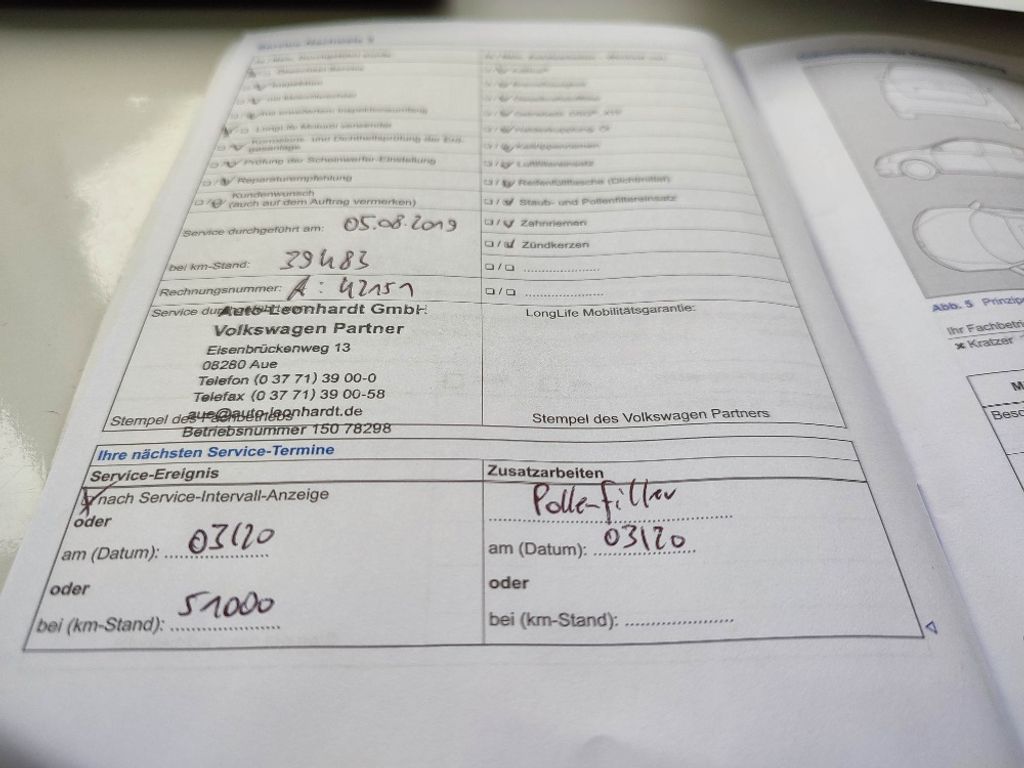 Inspektion
LongLife Motoröl verwendet
Prüfung der Scheinwerfer-Einstellung
Reparaturempfehlung
Kundenwunsch
(auch auf dem Auftrag vermerken)
Service durchgeführt am: 05.08.2019
bei km-Stand: 39483
Rechnungsnummer: A: 42151
Auto-Leonhardt GmbH
Volkswagen Partner
Eisenbrückenweg 13
08280 Aue
Telefon (0 37 71) 39 00-0
Telefax (0 37 71) 39 00-58
aue@auto-leonhardt.de
Betriebsnummer 150 78298
Stempel des Fachbetriebs
Luftfiltereinsatz
Reifenfüllflasche (Dichtmittel)
Staub- und Pollenfiltereinsatz
Zahnriemen
Zündkerzen
LongLife Mobilitätsgarantie:
Stempel des Volkswagen Partners
Ihre nächsten Service-Termine
Service-Ereignis
nach Service-Intervall-Anzeige
oder
am (Datum): 03/20
oder
bei (km-Stand): 51000
Zusatzarbeiten
Pollenfilter
am (Datum): 03/20
oder
bei (km-Stand):
Abb. 5
Ihr Fachbetri
Kratzer